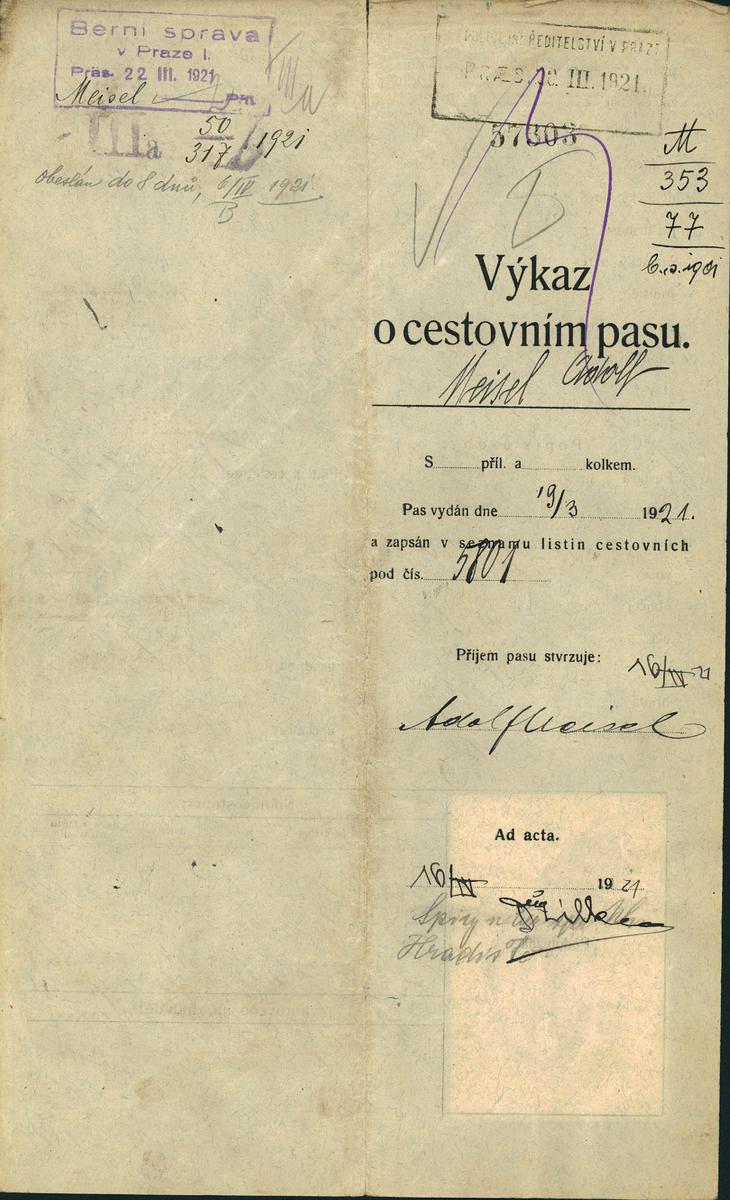 Berní správa
v Praze I.
Präs. 22 III. 1921
Meisel
IIIa
IIIa 50/317 1921
obeslán do 8 dnů, 6/IV 1921.
B
POLICEJNÍ ŘEDITELSTVÍ V PRAZE
PRÆS. III. 1921.
57303
M
353
77
Výkaz
o cestovním pasu.
Meisel Adolf
S příl. a kolkem.
Pas vydán dne 19/3 1921.
a zapsán v seznamu listin cestovních
pod čís. 5801
Příjem pasu stvrzuje:
16/IV 21
Adolf Meisel
Ad acta.
16/IV 1921
Spisy u
Hradiště